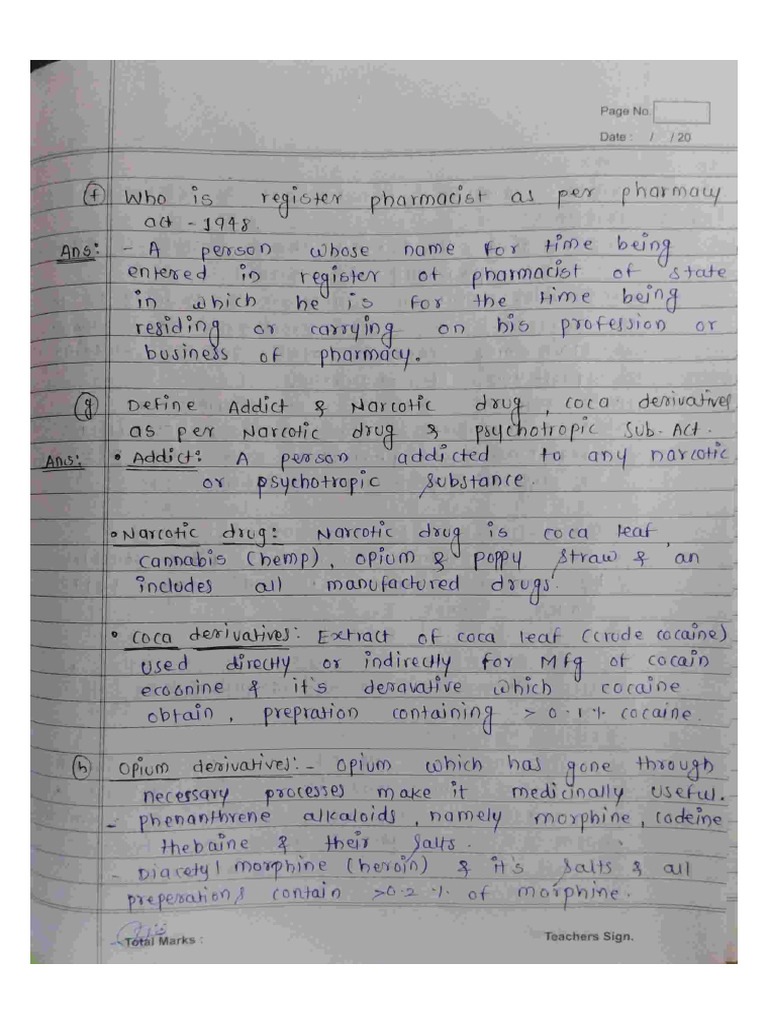 Page No.
Date : / / 20
(f) Who is register pharmacist as per pharmacy
act - 1948.
Ans: - A person whose name for time being
entered in register of pharmacist of state
in which he is for the time being
residing or carrying on his profession or
business of pharmacy.
(g) Define Addict & Narcotic drug, coca derivatives
as per Narcotic drug & psychotropic Sub. Act.
Ans: • Addict: A person addicted to any narcotic
or psychotropic substance.
• Narcotic drug: Narcotic drug is coca leaf,
cannabis (hemp), opium & poppy straw & an
includes all manufactured drugs.
• Coca derivatives: Extract of coca leaf (crude cocaine)
used directly or indirectly for Mfg of cocain
ecoonine & it's deravative which cocaine
obtain, prepration containing > 0.1% cocaine.
(h) Opium derivatives:- Opium which has gone through
necessary processes make it medicinally useful.
- phenanthrene alkaloids, namely morphine, codeine
thebaine & their salts.
- Diacetyl morphine (heroin) & it's salts & all
preperations contain >0.2% of morphine.
Total Marks :
Teachers Sign.